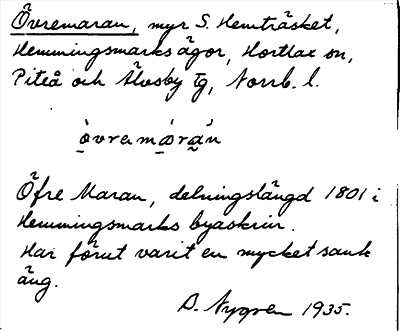 Övremaran, myr S. Hemträsket,
Hemmingsmarks ägor, Hortlax sn,
Piteå och Älvsby tg, Norrb. l.
òvremaràn
Öfre Maran, delningslängd 1801 i
Hemmingsmarks byaskrin.
Har förut varit en mycket sank
äng.
D. Nygren 1935.